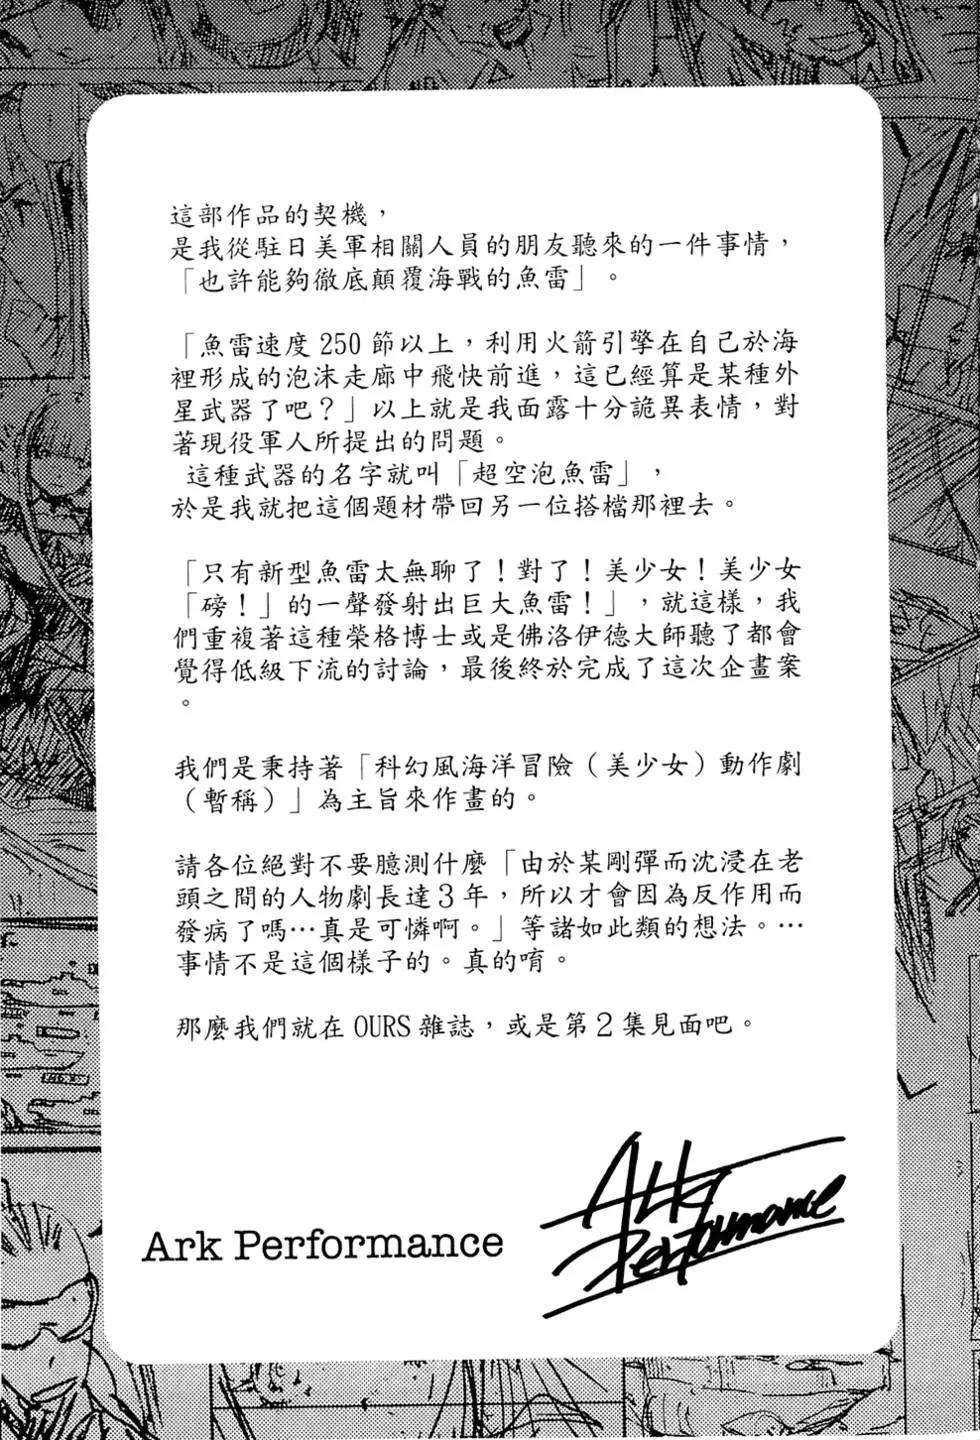 這部作品的契機，
是我從駐日美軍相關人員的朋友聽來的一件事情，
「也許能夠徹底顛覆海戰的魚雷」。
「魚雷速度 250 節以上，利用火箭引擎在自己於海
裡形成的泡沫走廊中飛快前進，這已經算是某種外
星武器了吧？」以上就是我面露十分詭異表情，對
著現役軍人所提出的問題。
這種武器的名字就叫「超空泡魚雷」，
於是我就把這個題材帶回另一位搭檔那裡去。
「只有新型魚雷太無聊了！對了！美少女！美少女
「磅！」的一聲發射出巨大魚雷！」，就這樣，我
們重複著這種榮格博士或是佛洛伊德大師聽了都會
覺得低級下流的討論，最後終於完成了這次企畫案
。
我們是秉持著「科幻風海洋冒險（美少女）動作劇
（暫稱）」為主旨來作畫的。
請各位絕對不要臆測什麼「由於某剛彈而沈浸在老
頭之間的人物劇長達３年，所以才會因為反作用而
發病了嗎…真是可憐啊。」等諸如此類的想法。…
事情不是這個樣子的。真的唷。
那麼我們就在 OURS 雜誌，或是第２集見面吧。
Ark Performance
Ark
Performance